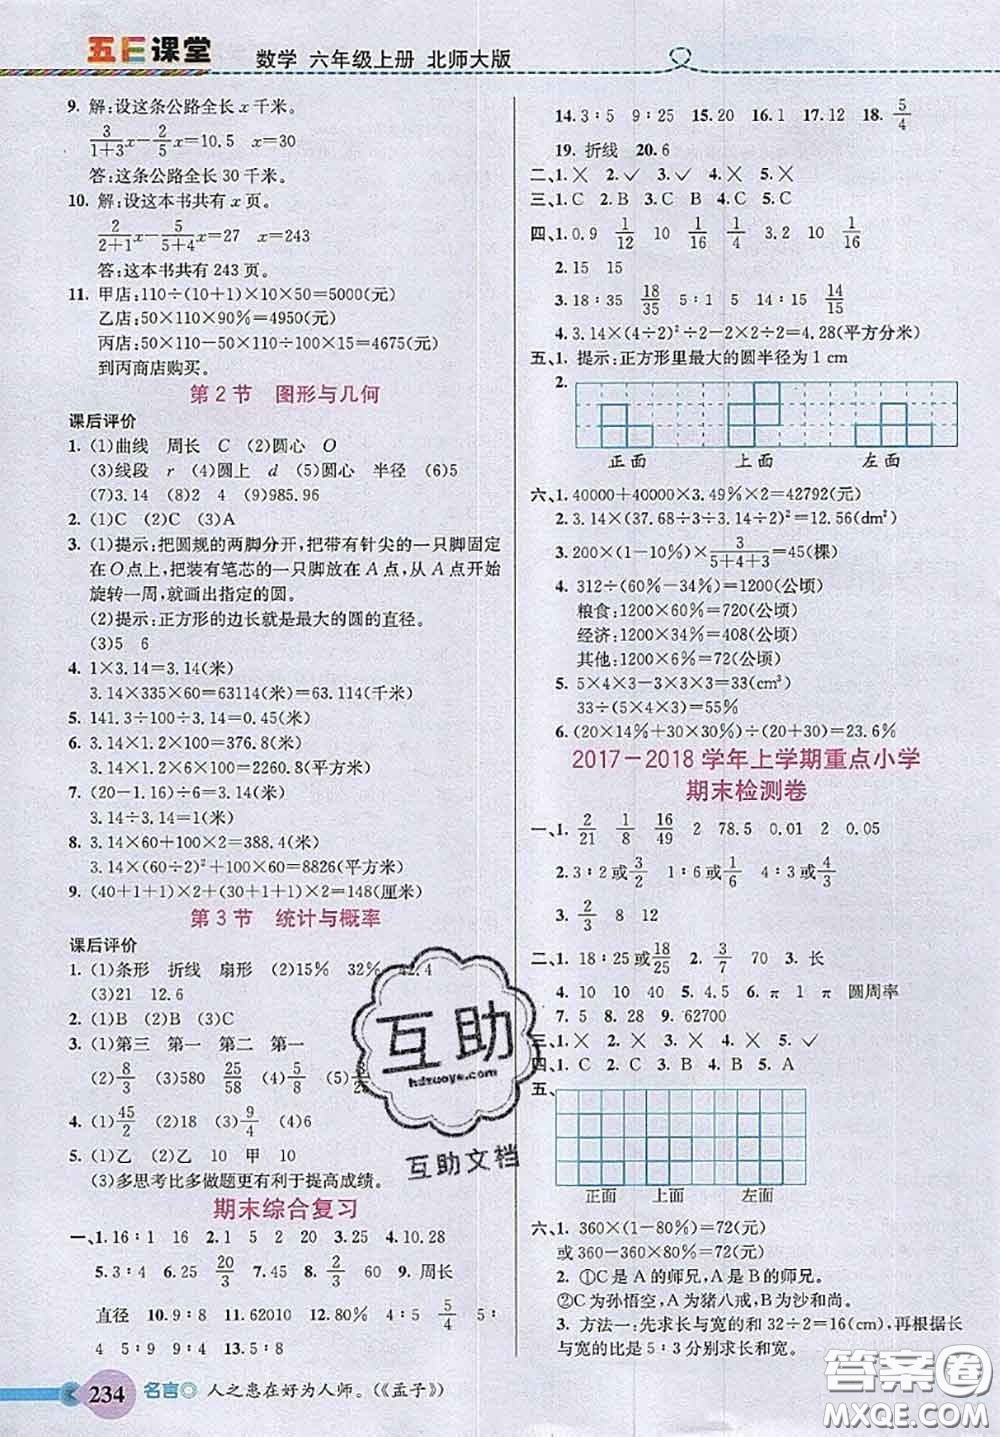 五E课堂 数学 六年级上册 北师大版
9. 解:设这条公路全长 x 千米。
3/(1+3)x-2/5x=10.5 x=30
答:这条公路全长 30 千米。
10. 解:设这本书共有 x 页。
2/(2+1)x-5/(5+4)x=27 x=243
答:这本书共有 243 页。
11. 甲店:110÷(10+1)×10×50=5000(元)
乙店:50×110×90%=4950(元)
丙店:110×50-50×110÷100×15=4675(元)
到丙商店购买。
第 2 节 图形与几何
课后评价
1. (1)曲线 周长 C (2)圆心 O
(3)线段 r (4)圆上 d (5)圆心 半径 (6)5
(7)3.14 (8)2 4 (9)985.96
2. (1)C (2)C (3)A
3. (1)提示:把圆规的两脚分开,把带有针尖的一只脚固定
在 O 点上,把装有笔芯的一只脚放在 A 点,从 A 点开始
旋转一周,就画出指定的圆。
(2)提示:正方形的边长就是最大的圆的直径。
(3)5 6
4. 1×3.14=3.14(米)
3.14×335×60=63114(米)=63.114(千米)
5. 141.3÷100÷3.14=0.45(米)
6. 3.14×1.2×100=376.8(米)
3.14×1.2×6×100=2260.8(平方米)
7. (20-1.16)÷6=3.14(米)
3.14÷3.14=1(米)
8. 3.14×60+100×2=388.4(米)
3.14×(60÷2)²+100×60=8826(平方米)
9. (40+1+1)×2+(30+1+1)×2=148(厘米)
第 3 节 统计与概率
课后评价
1. (1)条形 折线 扇形 (2)15% 32% 42.4
(3)21 12.6
2. (1)B (2)B (3)C
3. (1)第三 第一 第二 第一
(2)8/3 (3)580 25/58 (4)5/8 (5)8/3
4. (1)45/2 (2)18 (3)9/4 (4)6
5. (1)乙 (2)乙 10 甲 10
(3)多思考比多做题更有利于提高成绩。
期末综合复习
一、1.16∶1 16 2.1 5 2 20 3.25 4.10.28
5.3∶4 6.25 20/3 7.45 8.2/3 60 9.周长
直径 10.9∶8 11.62010 12.80% 4∶5 5/4 5∶
4 4∶5 9∶4 13.5∶8
14.3∶5 9∶25 15.20 16.10 17.12 18.5/4
19. 折线 20.6
二、1.× 2.✓ 3.✓ 4.× 5.×
三、1.C 2.B 3.C B 4.C 5.C
四、1.0.9 1/12 10 1/16 1/4 3.2 10 1/16
2.15 15
3.18∶35 18/35 5∶1 5 14∶15 14/15
4.3.14×(4÷2)²÷2-2×2÷2=4.28(平方分米)
五、1. 提示:正方形里最大的圆半径为 1 cm
2.
正面 上面 左面
六、1. 40000+40000×3.49%×2=42792(元)
2. 3.14×(37.68÷3÷3.14÷2)²=12.56(dm²)
3. 200×(1-10%)×3/(5+4+3)=45(棵)
4. 312÷(60%-34%)=1200(公顷)
粮食:1200×60%=720(公顷)
经济:1200×34%=408(公顷)
其他:1200×6%=72(公顷)
5. 5×4×3-3×3×3=33(cm³)
33÷(5×4×3)=55%
6. (20×14%+30×30%)÷(20+30)=23.6%
2017-2018 学年上学期重点小学
期末检测卷
一、1. 2/21 1/8 16/49 2 78.5 0.01 2 0.05
2.3∶2或3/2 1∶6或1/6 4∶3或4/3
3. 2/3 8 12
二、1. 18∶25或18/25 2. 3/7 70 3. 长
4. 10 10 40 5. 4.5 6. π 1 π 圆周率
7. 5 8. 5 9. 62700
三、1.× 2.× 3.✓ 4.× 5.×
四、1. C 2. B 3. C 4. A 5. C
五、
正面 上面 左面
六、1. 360×(1-80%)=72(元)
或360-360×80%=72(元)
2. ①C是 A 的师兄,A 是 B 的师兄。
②C为孙悟空,A为猪八戒,B为沙和尚。
3. 方法一:先求长与宽的和 32÷2=16(cm),再根据长
与宽的比 5∶3 分别求长和宽。
234 名言 人之患在好为人师。(《孟子》)
互助
hdzuoye.com
互助文档
答案圈
MXQE.COM